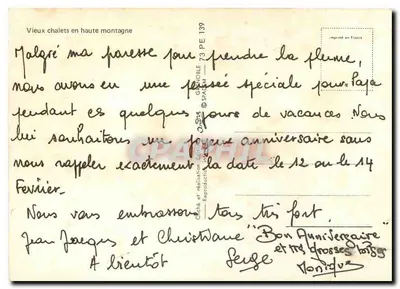 Vieux chalets en haute montagne
73 PE 139
Malgré ma paresse pour prendre la plume,
nous avons eu une pensée spéciale pour Papa
pendant ces quelques jours de vacances. Nous
lui souhaitons un joyeux anniversaire sans
nous rappeler exactement la date le 12 ou le 14
Février.
Nous vous embrassons tous très fort.
Jean Jacques et Christiane "Bon Anniversaire"
A bientôt Serge et très grosses bises
Monique